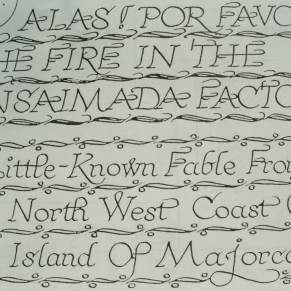 ALAS! POR FAVO
HE FIRE IN THE
NSAIMADA FACTO
Little-Known Fable Fro
North West Coast
Island Of Majorca